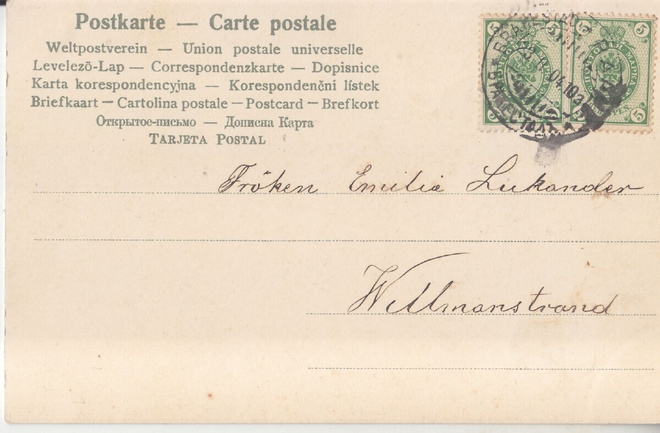 Postkarte — Carte postale
Weltpostverein — Union postale universelle
Levelezō-Lap — Correspondenzkarte — Dopisnice
Karta korespondencyjna — Korespondenčni lístek
Briefkaart — Cartolina postale — Postcard — Brefkort
Открытое-письмо — Дописна Карта
TARJETA POSTAL
5 5 5
5 5
Fröken Emilia Lukander
Willmanstrand